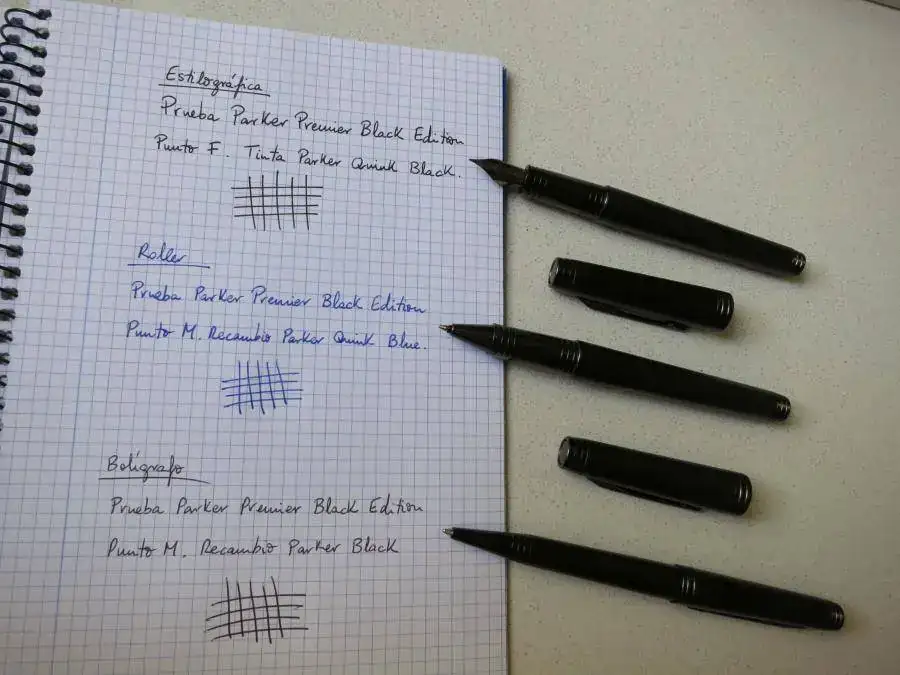 Estilográfica
Prueba Parker Premier Black Edition
Punto F. Tinta Parker Quink Black.
Roller
Prueba Parker Premier Black Edition
Punto M. Recambio Parker Quink Blue.
Bolígrafo
Prueba Parker Premier Black Edition
Punto M. Recambio Parker Black